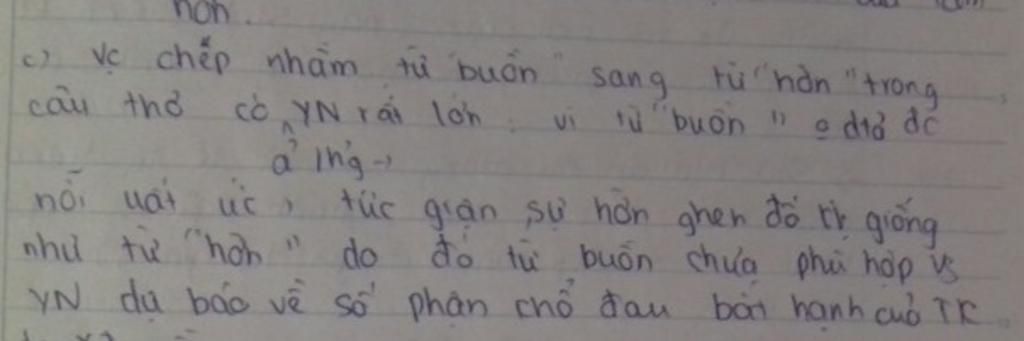 hờn.
c) Vc chép nhầm từ "buồn" sang từ "hờn" trong
câu thơ có YN rất lớn vì từ "buồn" o dtả đc
ả' hg→
nỗi uất ức, tức giận sự hờn ghen đố kỵ giống
như từ "hờn" do đó từ buồn chưa phù hợp vs
YN dự báo về số phận chổ đau bất hạnh của TK